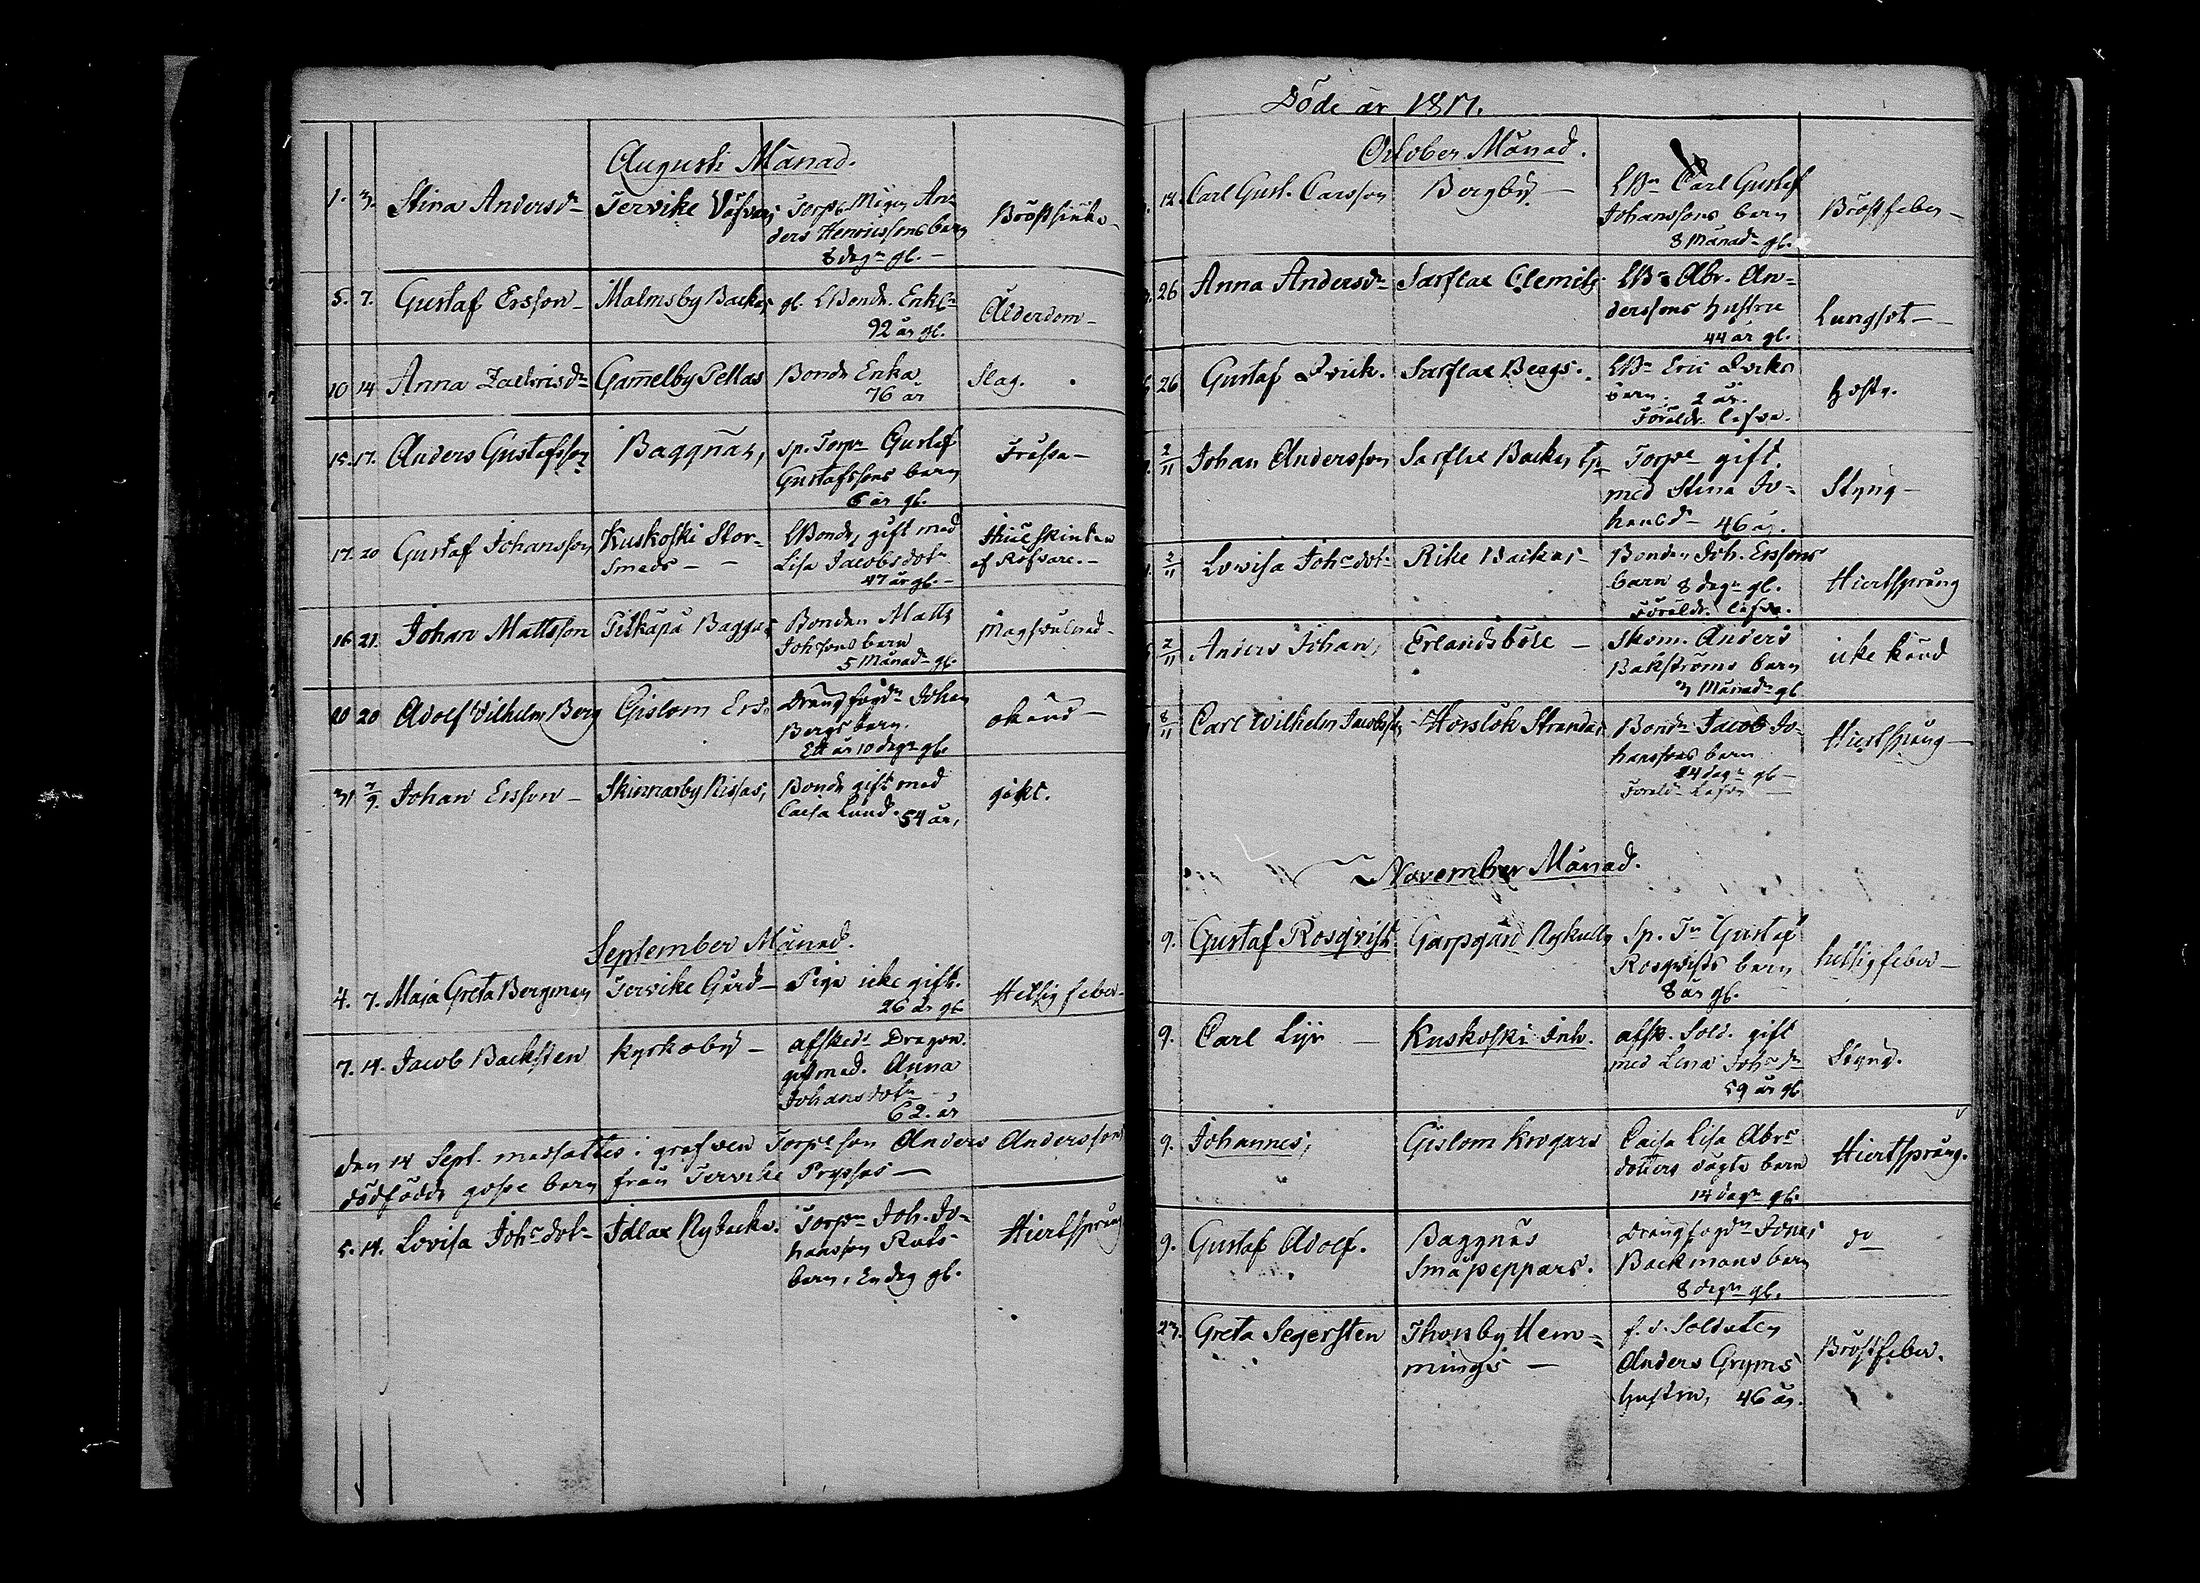 Augusti Månad.
1. 3. Stina Andersdr Tervike Torp. Anders Henricssons barn 8 dagr gl. Bröstsiuka
5. 7. Gustaf Ersson Malmsby Backas gl. LBonde. Enkl. 92 år gl. Ålderdom
10 14 Anna Zachrisdr Gam̄elby Pellas Bonde Enka 76 år Slag.
15. 17. Anders Gustafsson Baggnäs, Sp. Torpr Gustaf Gustafssons barn 6 år gl. Frossa
17. 20 Gustaf Johansson Kuskoski Storsmeds LBonde, gift med Lisa Jacobsdotr 47 år gl. af Röfvare.
16 21. Johan Mattsson Pitkäpä Baggas Bonden Matts Johssons barn 5 Månadr gl.
20 20 Adolf Vilhelm Berg Gislom Ers. Drängfogdn Johan Bergs barn. Ett år 10 dagr gl. okänd
31 2/9. Johan Ersson Skinnarby Nissas, Bonde gift med Caisa Lund. 54 år, gikt.
September Månad.
4. 7. Maja Greta Bergman Tervike Gård Piga icke gift. 26 år gl. Hetsig feber
7. 14. Jacob Backsten Kyrkoby afsked. Dragon. gift med. Anna Johansdotr 62. år
den 14 Sept. nedsattes i grafven Torp. son Anders Anderssons
dödfödde gosse barn från Tervike Prysses
5. 14. Lovisa Johs dotr Idlax Nybacka. Torpn Joh. Johansson barn, En dag gl. Hiertsprång
Döde år 1817.
October Månad.
12. Carl Gust. Carsson Bergby LBn Carl Gustaf Johanssons barn 8 Månadr gl. Bröstfeber
26 Anna Andersdr Sarflax Clemets LBn Abr. Anderssons hustru 44 år gl. Lungsot
26 Gustaf Qvick. Sarflax Bergs. LBn Eric Qvicks barn. 2 år. Föräldr. lefva. hosta.
2/11 Johan Andersson Sarflax Backas Torpr gift. med Stina Johansdr 46 år. Styng
2/11 Lovisa Johs dotr Rike Backas Bonden Joh. Erssons barn 8 dagr gl. Föräldr. lefva. Hiertsprång
2/11 Anders Johan, Erlandsböle Skom. Anders Bakströms barn 3 Månadr gl. icke känd
8/11 Carl Wilhelm Jacobsson Horslök Strandas Bondn Jacob Johanssons barn 14 dagr gl. Föräldr Lefva Hiertsprång
November Månad.
9. Gustaf Rosqvist Garpgård Nykulla Sp. Tn Gustaf Rosqvists barn 8 år gl. hetsig feber
9. Carl Lijr Kuskoski Inh. afsk. Sold. gift med Lena Johs dr 59 år gl. Styng.
9. Johannes, Gislom Krogars Caisa Lisa Abrs dotters oägta barn 14 dagr gl. Hiertsprång.
9. Gustaf Adolf. Baggnäs Småpeppars. Drängfogdn Jonas Backmans barn 8 dagr gl. do
23. Greta Segersten Thorsby Hemmings f. d. Soldaten Anders Gryms hustru, 46 år. Bröstfeber.